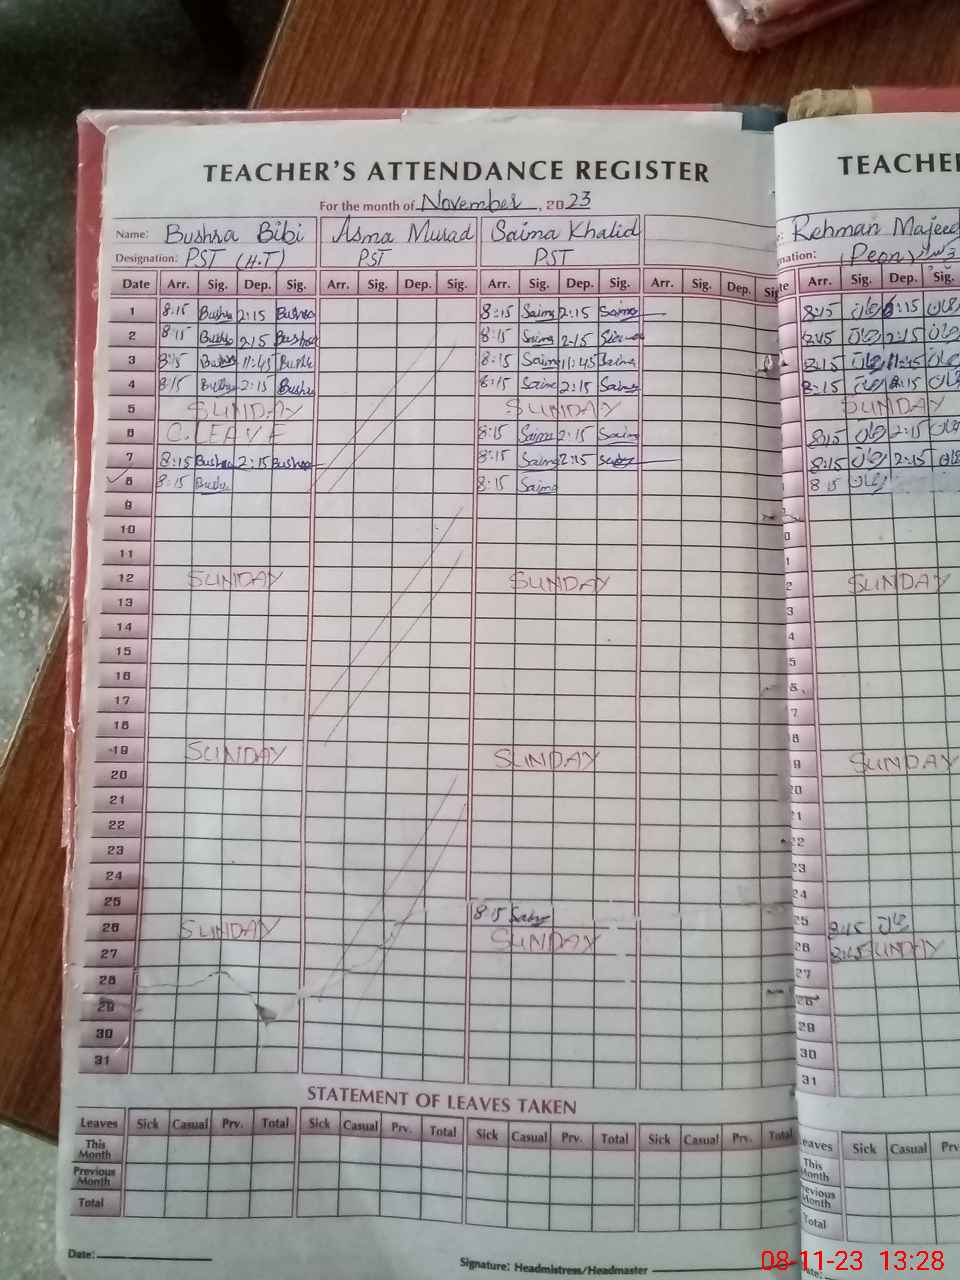 TEACHER'S ATTENDANCE REGISTER
For the month of November, 2023
Name: Bushra Bibi Asma Murad Saima Khalid
Designation: PST (H.T) PST PST
Date Arr. Sig. Dep. Sig. Arr. Sig. Dep. Sig. Arr. Sig. Dep. Sig. Arr. Sig. Dep. Sig
1 8:15 Bushra 2:15 Bushra 8:15 Saima 2:15 Saima
2 8:15 Bushra 2:15 Bushra 8:15 Saima 2:15
3 8:15 Bushra 11:45 Bushra 8:15 Saima 11:45 Saima
4 8:15 Bushra 2:15 Bushra 8:15 Saima 2:15 Saima
5 SUNDAY SUNDAY
6 C.LEAVE 8:15 Saima 2:15 Saima
7 8:15 Bushra 2:15 Bushra 8:15 Saima 2:15
8 8:15 Bushra 8:15 Saima
9
10
11
12 SUNDAY SUNDAY
13
14
15
16
17
18
19 SUNDAY SUNDAY
20
21
22
23
24
25
8:15 Saima
26 SUNDAY SUNDAY
27
28
29
30
31
STATEMENT OF LEAVES TAKEN
Leaves Sick Casual Prv. Total Sick Casual Prv. Total Sick Casual Prv. Total Sick Casual Prv. Total
This Month
Previous Month
Total
Date:
Signature: Headmistress/Headmaster
TEACHE
Rehman Majeed
nation: (Peon)
te Arr. Sig. Dep. Sig.
8:15 2:15
8:15 2:15
8:15 11:45
8:15 2:15
SUNDAY
8:15 2:15
8:15 2:15
8:15
0
1
2 SUNDAY
3
4
5
6
7
8
9 SUNDAY
20
21
22
23
24
25 8:15
26 8:15 SUNDAY
27
28
29
30
31
eaves Sick Casual Prv
This Month
revious Month
Total
ate:
08-11-23 13:28